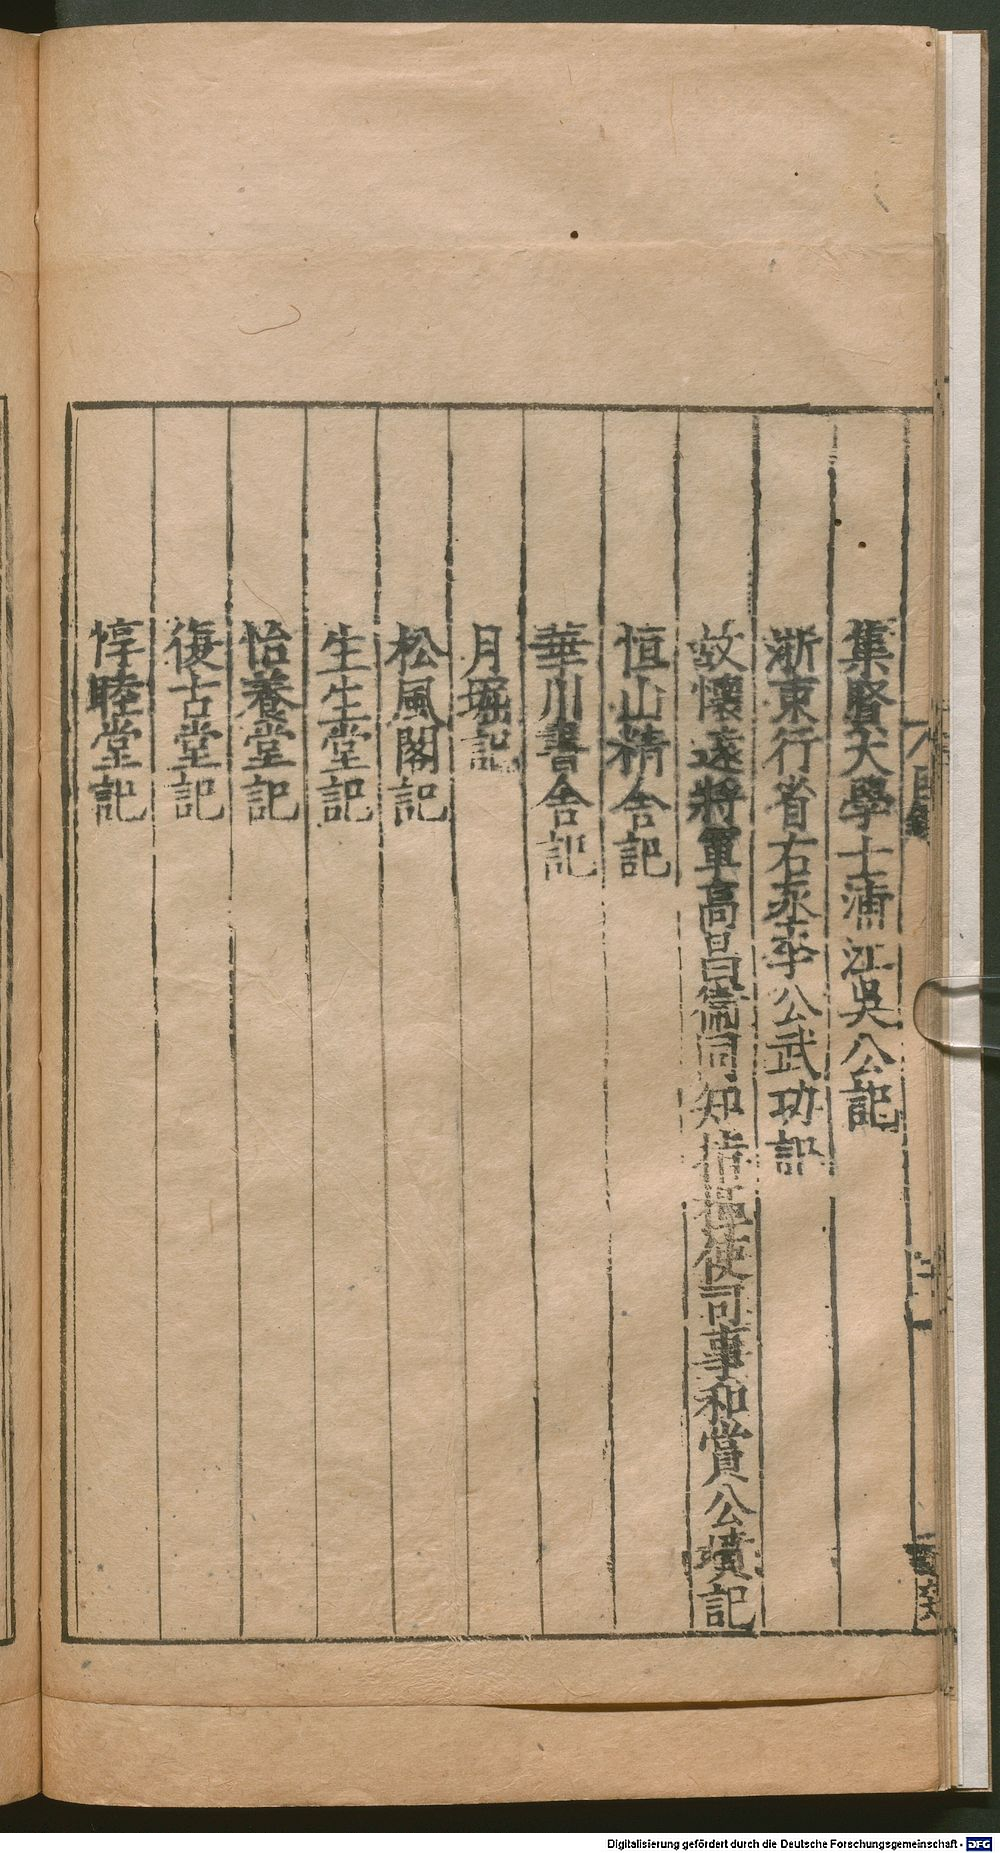 集賢大學士浦江吳公記
浙東行省右丞李公武功記
故懷遠將軍高昌衞同知指揮使司事和賞公墳記
恒山精舍記
華川書舍記
月堀記
松風閣記
生生堂記
怡養堂記
復古堂記
惇睦堂記
目錄
Digitalisierung gefördert durch die Deutsche Forschungsgemeinschaft - DFG